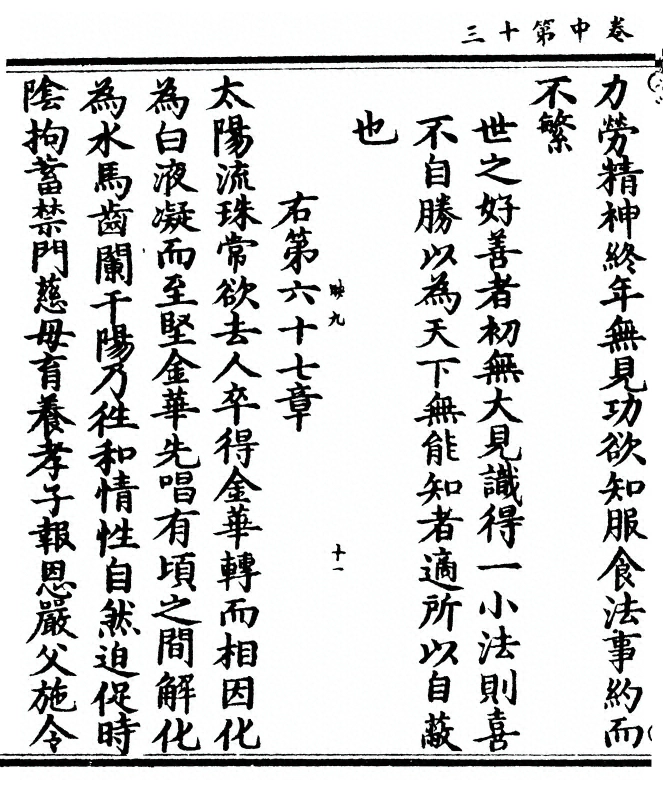 卷中第十三
力勞精神終年無見功欲知服食法事約而
不繁
世之好善者初無大見識得一小法則喜
不自勝以為天下無能知者適所以自蔽
也
右第六十七章
映九
十一
太陽流珠常欲去人卒得金華轉而相因化
為白液凝而至堅金華先唱有頃之間解化
為水馬齒闌干陽乃徃和情性自然迫促時
陰拘蓄禁門慈母育養孝子報恩嚴父施令